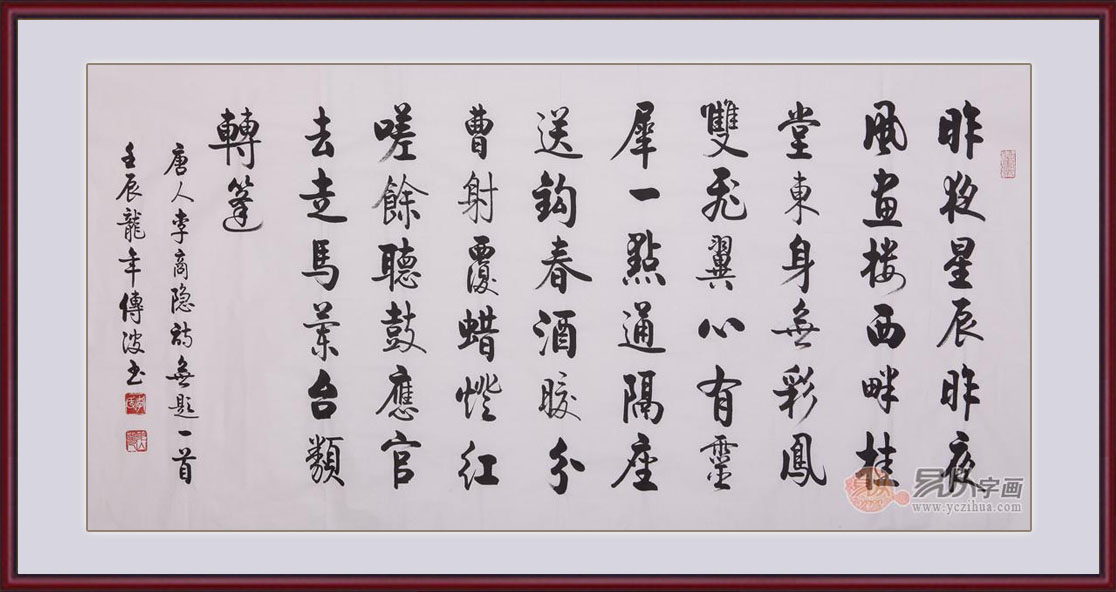 昨夜星辰昨夜
風画楼西畔桂
堂東身無彩鳳
雙飛翼心有靈
犀一點通隔座
送鈎春酒暖分
曹射覆蜡燈紅
嗟餘聽鼓應官
去走馬蘭台類
轉篷
唐人李商隐詩無题一首
壬辰龍年傳波书
易从字画
www.yczihua.com